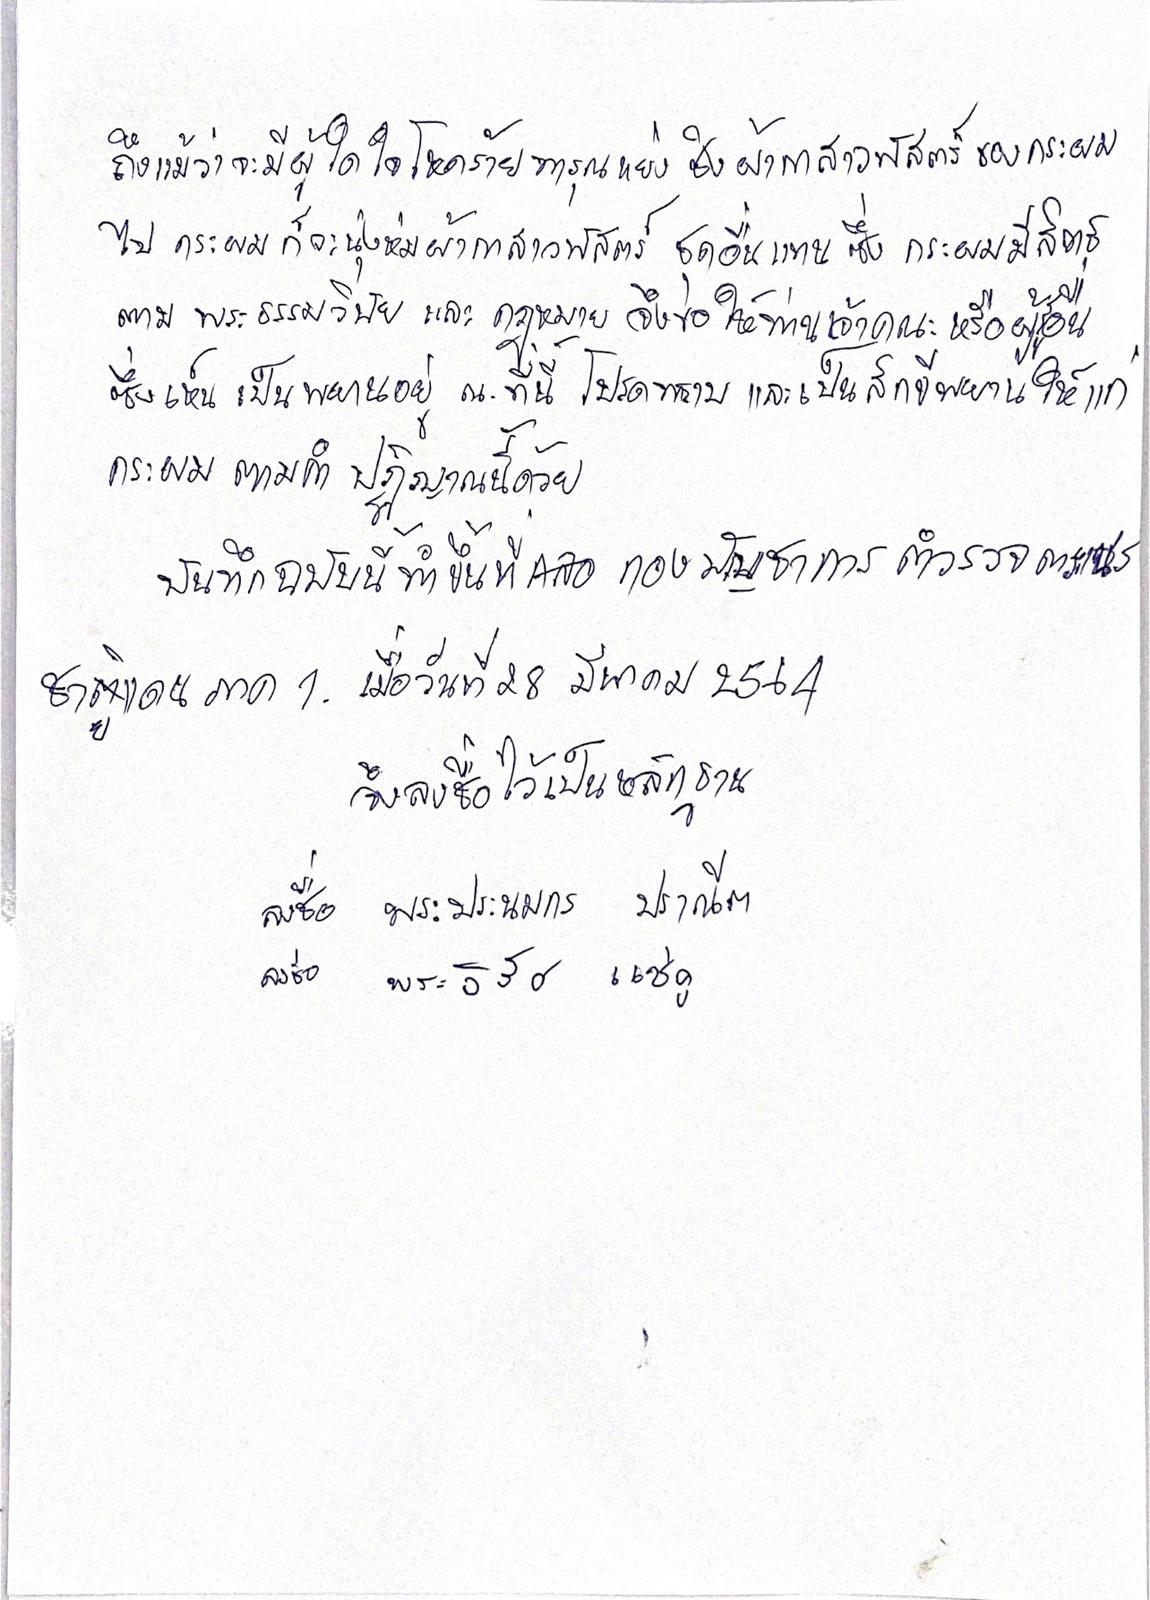 ถึงแม้ว่าจะมีผู้ใดใจโหดร้ายทารุณแย่งชิงผ้ากาสาวพัสตร์ของกระผม
ไป กระผมก็จะนุ่งห่มผ้ากาสาวพัสตร์ ชุดอื่นแทน ซึ่ง กระผมมีสิทธิ
ตาม พระธรรมวินัย และ กฎหมาย จึงขอให้ท่านเจ้าคณะ หรือผู้อื่น
ซึ่งเห็น เป็นพยานอยู่ ณ.ที่นี้ โปรดทราบ และเป็นสักขีพยานให้แก่
กระผม ตามคำ ปฏิญาณนี้ด้วย
บันทึกฉบับนี้ทำขึ้นที่ กองบัญชาการ ตำรวจตระเวน
ชายแดน ภาค 1. เมื่อวันที่ 28 มีนาคม 2564
จึงลงชื่อไว้เป็นหลักฐาน
ลงชื่อ พระประนมกร ปราณีต
ลงชื่อ พระ แซ่คู